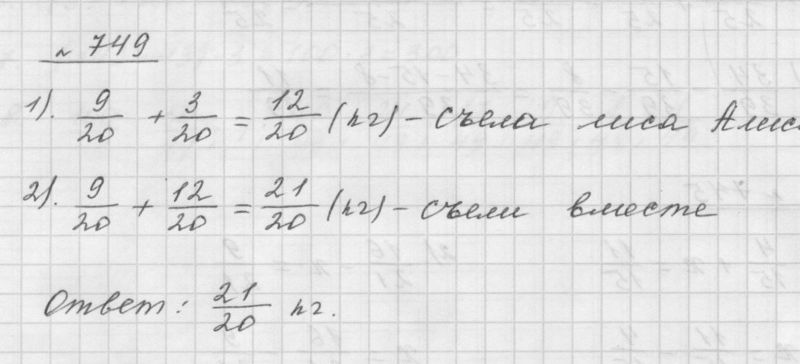 № 749
1). 9/20 + 3/20 = 12/20 (кг) – съела лиса Алиса
2). 9/20 + 12/20 = 21/20 (кг) – съели вместе
Ответ: 21/20 кг.